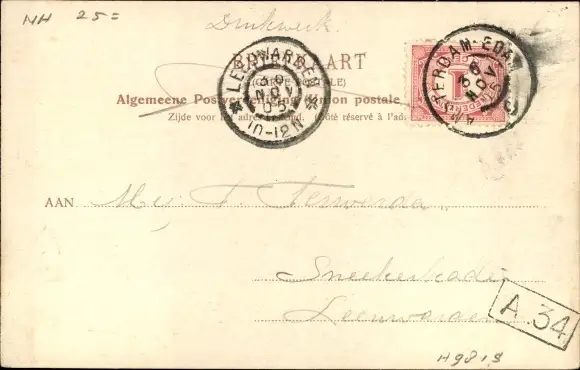 NH 25=
Drukwerk.
BRIEFKAART
(CARTE POSTALE)
Algemeene Postvereeniging (Union postale
Zijde voor het adres bestemd. (Côté réservé à l'ad
LEEUWARDEN
6 NOV 05
10-12N
AMSTERDAM-EDAM
NOV
NEDERL
1
AAN Mej. F. Terwerda
Sneekerkade
Leeuwarden
A.34
H9819